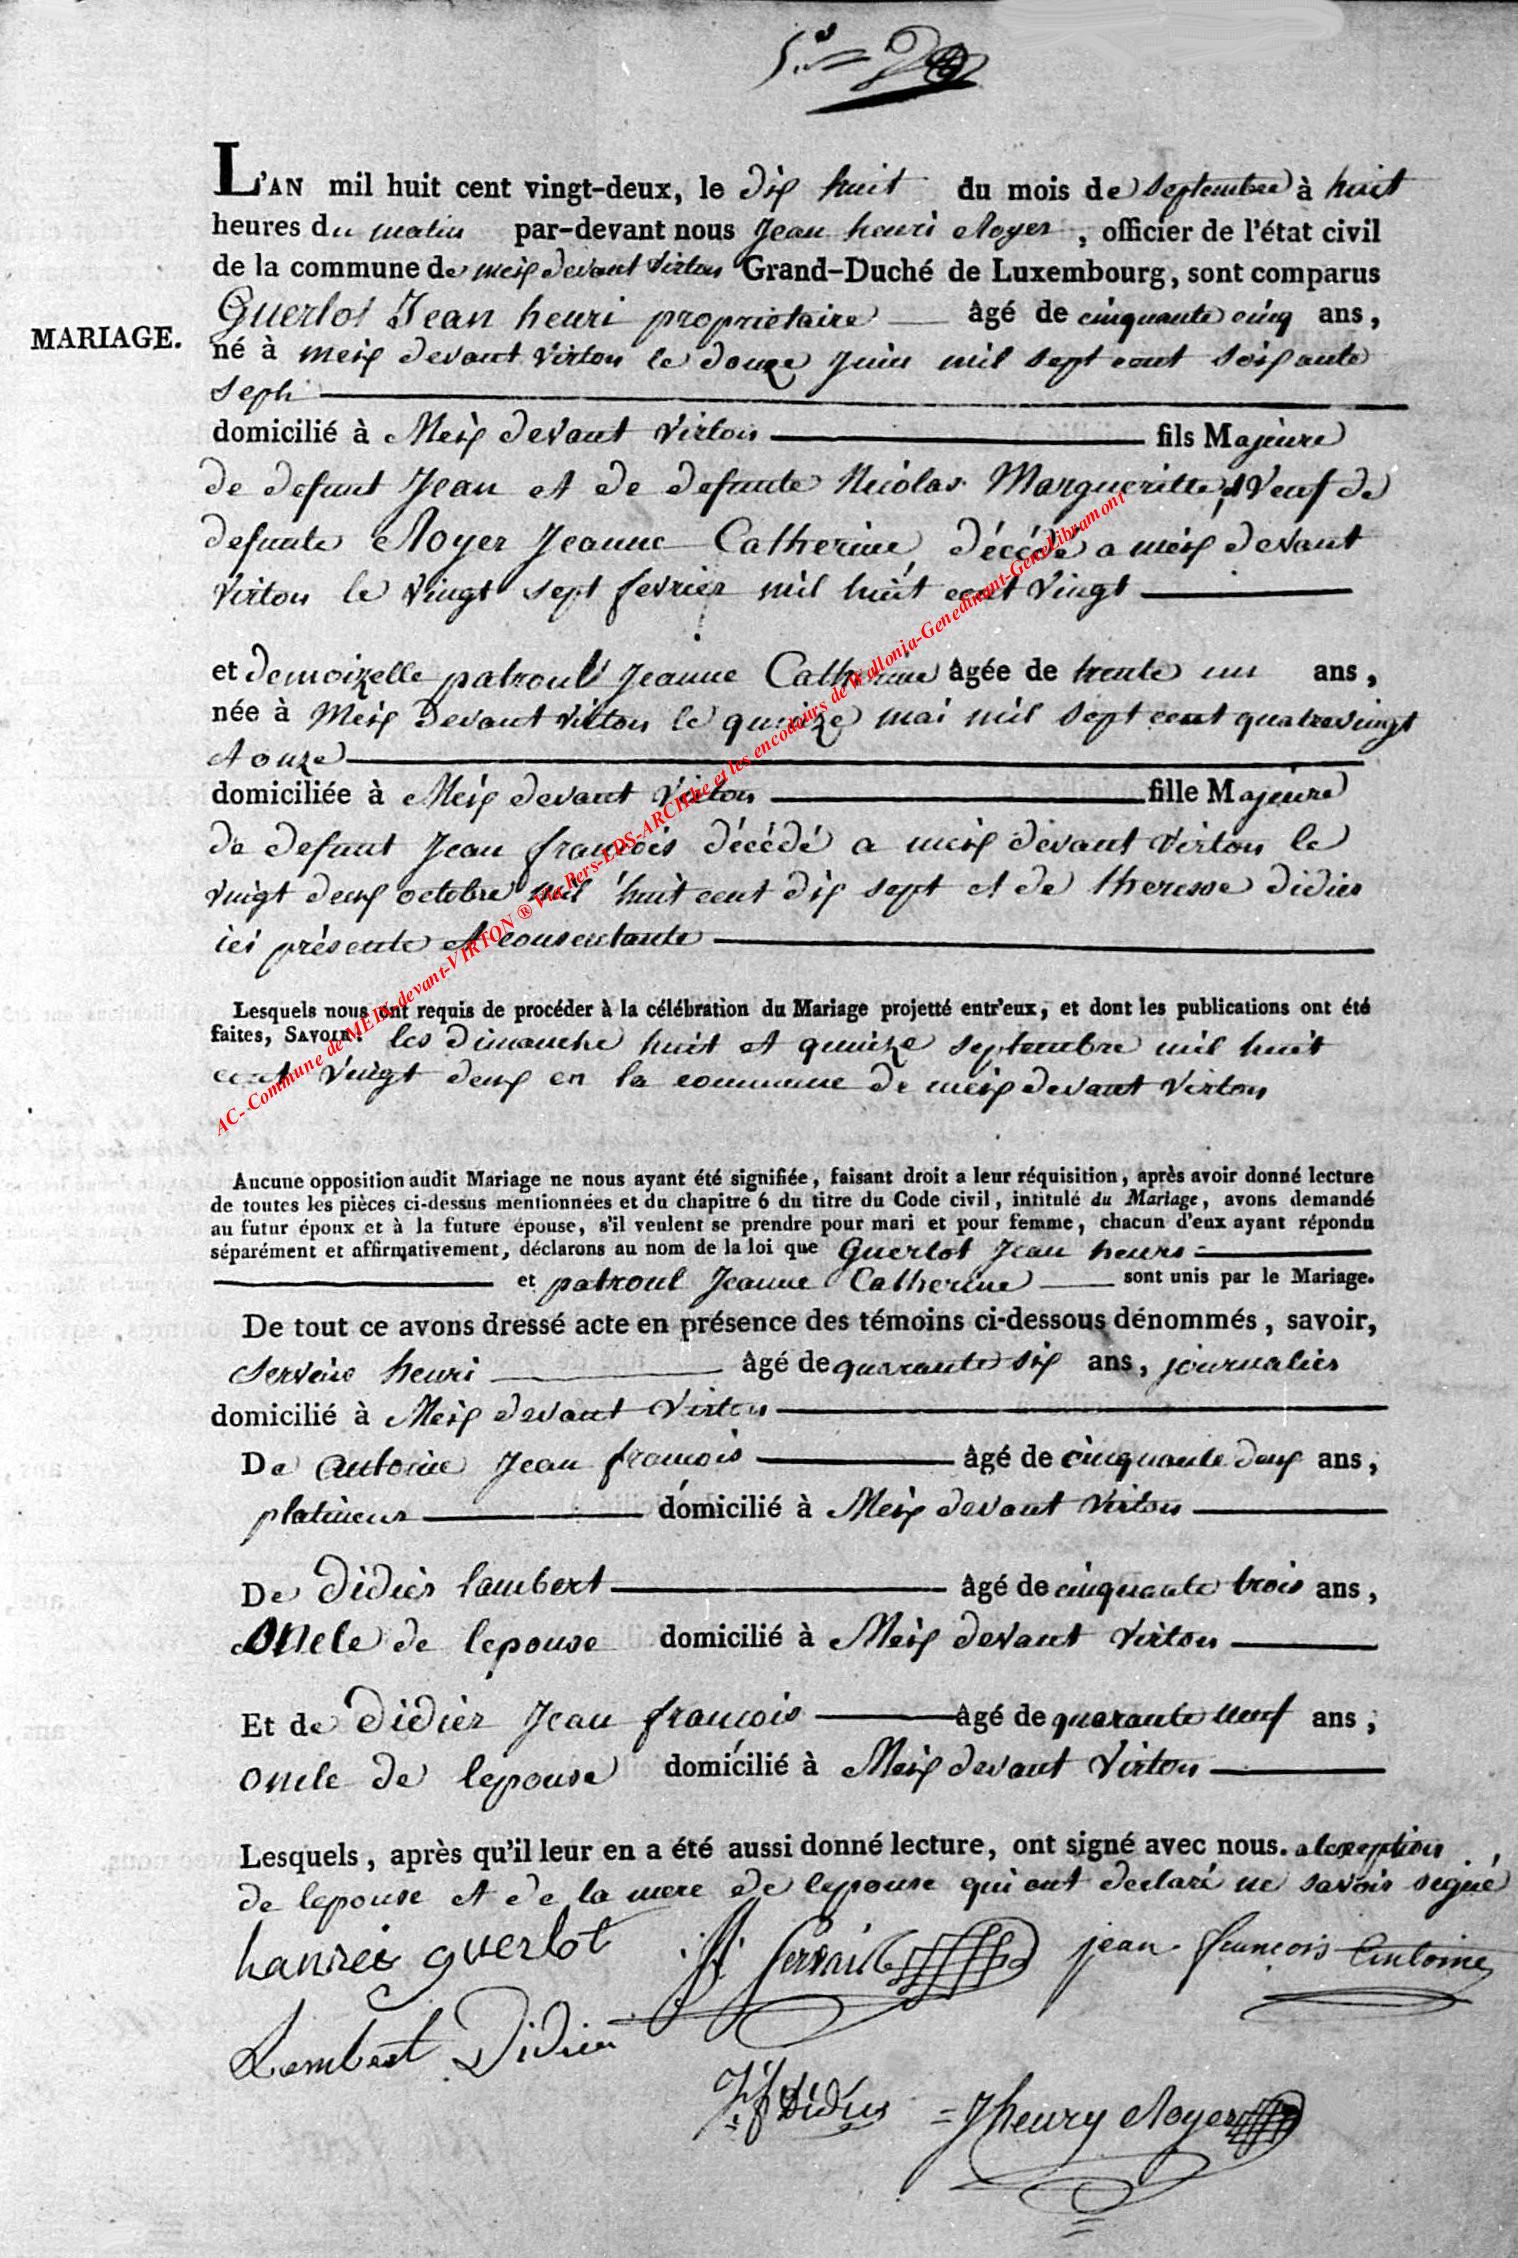 L'AN mil huit cent vingt-deux, le dix huit du mois de septembre à huit
heures du matin par-devant nous Jean henri Noyer, officier de l'état civil
de la commune de meix devant virton Grand-Duché de Luxembourg, sont comparus
Guerlot Jean henri proprietaire âgé de cinquante cinq ans,
MARIAGE.
né à meix devant virton le douze juin mil sept cent soixante
sept
domicilié à Meix devant virton fils Majeure
de defunt Jean et de defunte Nicolas Margueritte, Veuf de
defunte Noyer Jeanne Catherine, décédé a meix devant
virton le vingt sept fevrier mil huit cent vingt
et demoizelle patroul Jeanne Catherine âgée de trente un ans,
née à Meix devant virton le quinze mai mil sept cent quatrevingt
onze
domiciliée à Meix devant Virton fille Majeure
de defunt Jean françois décédé a meix devant virton le
vingt deux octobre mil huit cent dix sept et de theresse didier
ici présente et consentante
Lesquels nous ont requis de procéder à la célébration du Mariage projetté entr'eux, et dont les publications ont été
faites, SAVOIR: les dimanche huit et quinze septembre mil huit
cent vingt deux en la commune de meix devant virton
Aucune opposition audit Mariage ne nous ayant été signifiée, faisant droit a leur réquisition, après avoir donné lecture
de toutes les pièces ci-dessus mentionnées et du chapitre 6 du titre du Code civil, intitulé du Mariage, avons demandé
au futur époux et à la future épouse, s'il veulent se prendre pour mari et pour femme, chacun d'eux ayant répondu
séparément et affirmativement, déclarons au nom de la loi que Guerlot Jean henri
et patroul Jeanne Catherine sont unis par le Mariage.
De tout ce avons dressé acte en présence des témoins ci-dessous dénommés, savoir,
Servais henri âgé de quarante six ans, journalier
domicilié à Meix devant Virton
De antoine Jean françois âgé de cinquante deux ans,
platineur domicilié à Meix devant virton
De didier lambert âgé de cinquante trois ans,
oncle de lepouse domicilié à Meix devant virton
Et de didier Jean françois âgé de quarante neuf ans,
oncle de lepouse domicilié à Meix devant Virton
Lesquels, après qu'il leur en a été aussi donné lecture, ont signé avec nous. a lexeption
de lepouse et de la mere de lepouse qui ont declaré ne savoir signé
hanrei guerlot H Servais jean françois Antoine
Lambert Didier
J f Didier = Jhenry Noyer
AC- Commune de MEIX-devant-VIRTON ® Via Pers-LDS-ARCH.be et les encodeurs de Wallonia-Genedinant-GeneLibramont